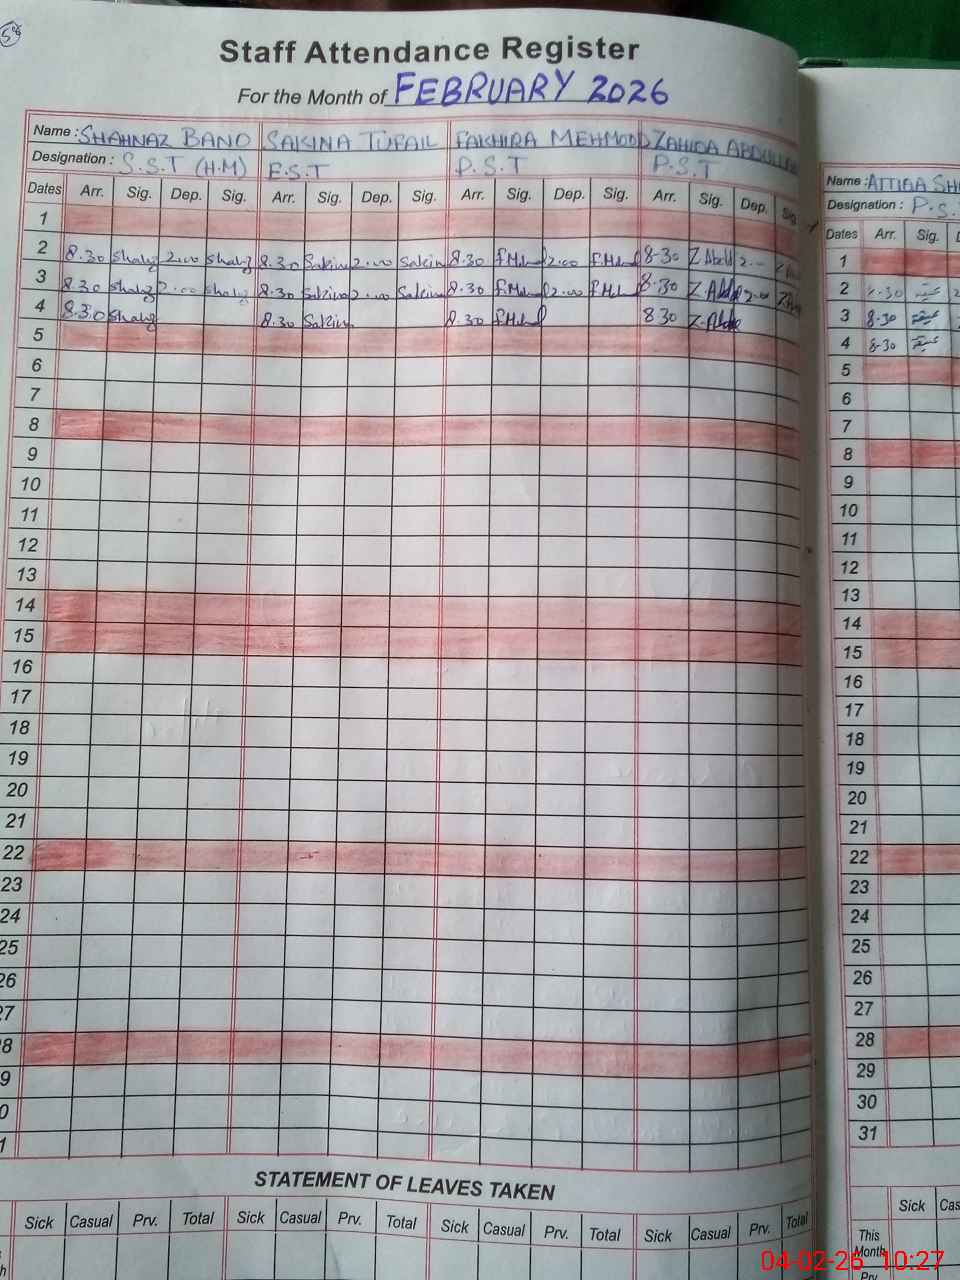 Staff Attendance Register
For the Month of FEBRUARY 2026
Name : SHAHNAZ BANO SAKINA TUFAIL FAKHIRA MEHMOOD ZAHIDA ABDULLAH
Designation : S.S.T (H.M) E.S.T P.S.T P.S.T
Dates Arr. Sig. Dep. Sig. Arr. Sig. Dep. Sig. Arr. Sig. Dep. Sig. Arr. Sig. Dep. Sig.
1
2 8.30 Shahz 2.00 Shahz 8.30 Sakina 2.00 Sakina 8.30 f.Mehmd 2.00 f.Mehmd 8-30 Z Abdl 2.--
3 8.30 Shahz 2.00 Shahz 8.30 Sakina 2.00 Sakina 8.30 f.Mehmd 2.00 f.Mehmd 8.30 Z.Abdl 2.00
4 8.30 Shahz 8.30 Sakina 8.30 f.Mehmd 8 30 Z.Abdl
5
6
7
8
9
10
11
12
13
14
15
16
17
18
19
20
21
22
23
24
25
26
27
8
9
0
1
STATEMENT OF LEAVES TAKEN
Sick Casual Prv. Total Sick Casual Prv. Total Sick Casual Prv. Total Sick Casual Prv. Total
Name : ATTIQA SH
Designation : P.S.
Dates Arr. Sig.
1
2 8.30 عتیقہ
3 8.30 عتیقہ
4 8-30 عتیقہ
5
6
7
8
9
10
11
12
13
14
15
16
17
18
19
20
21
22
23
24
25
26
27
28
29
30
31
Sick Cas
This
Month
Prv.
04-02-26 10:27